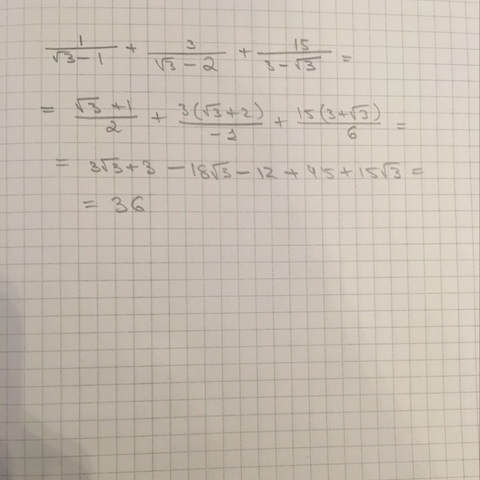 1/(√3 - 1) + 3/(√3 - 2) + 15/(3 - √3) =
= (√3 + 1)/2 + 3(√3 + 2)/-1 + 15(3 + √3)/6 =
= 3√3 + 3 - 18√3 - 12 + 45 + 15√3 =
= 36